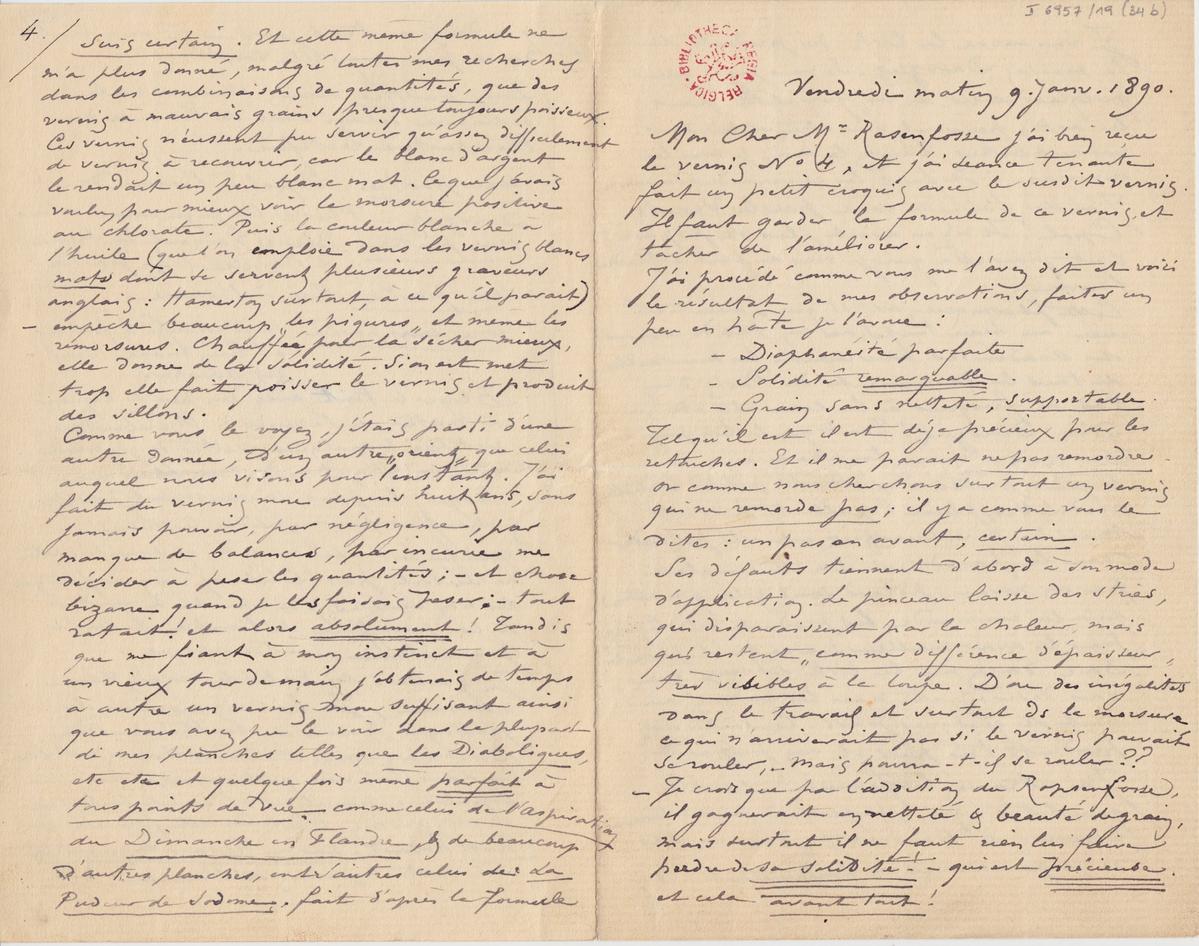 4.
suis certain. Et cette même formule ne
m'a plus donné, malgré toutes mes recherches
dans les combinaisons de quantités, que des
vernis à mauvais grains presque toujours poisseux.
Ces vernis n'eussent pu servir qu'assez difficilement
de vernis à recouvrir, car le blanc d'argent
le rendait un peu blanc mat. Ce que j'avais
voulu pour mieux voir la morsure positive
au chlorate. Puis la couleur blanche à
l'huile (que l'on emploie dans les vernis blancs
mats dont se servent plusieurs graveurs
anglais : Hamerton surtout, à ce qu'il parait)
— empêche beaucoup „les piqures„ et même les
remorsures. Chauffée pour la sécher mieux,
elle donne de la solidité. Si on en met
trop elle fait poisser le vernis et produit
des sillons.
Comme vous le voyez, j'étais parti d'une
autre donnée, d'un autre „orient„ que celui
auquel nous visons pour l'instant. J'ai
fait du vernis mou depuis huit ans, sans
jamais pouvoir, par négligence, par
manque de balances, par incurie me
décider à peser les quantités ; – et chose
bizarre quand je les faisais peser : – tout
ratait ! et alors absolument ! Tandis
que me fiant à mon instinct et à
un vieux tour de main j'obtenais de temps
à autre un vernis mou suffisant ainsi
que vous avez pu le voir dans la plupart
de mes planches telles que les Diaboliques,
etc etc et quelque fois même parfait à
tous points de vue. comme celui de l'aspiration
du Dimanche en Flandre, & de beaucoup
d'autres planches, entr'autres celui de La
Pudeur de Sodome. fait d'après la formule
I 6957/19 (34 b)
BIBLIOTHECA REGIA BELGICA
Vendredi matin 9. Janv. 1890.
Mon Cher Mr Rasenfosse j'ai bien reçu
le vernis No 4, et j'ai séance tenante
fait un petit croquis avec le susdit vernis.
Il faut garder la formule de ce vernis et
tâcher de l'améliorer.
J'ai procédé comme vous me l'avez dit et voici
le résultat de mes observations, faites un
peu en hâte je l'avoue :
– Diaphanéité parfaite
– Solidité remarquable.
– Grain sans netteté, supportable.
Tel qu'il est il est déjà précieux pour les
retouches. Et il me parait ne pas remordre.
or comme nous cherchons surtout un vernis
qui ne remorde pas ; il y a comme vous le
dites : un pas en avant, certain.
Ses défauts tiennent d'abord à son mode
d'application. Le pinceau laisse des stries,
qui disparaissent par la chaleur, mais
qui restent „comme différence d'épaisseur„
très visibles à la loupe. D'où des inégalités
dans le travail et surtout ds la morsure
ce qui n'arriverait pas si le vernis pouvait
se rouler, – mais pourra-t-il se rouler ??
— Je crois que par l'addition du Ropsenfosse,
il gagnerait en netteté & beauté de grain,
mais surtout il ne faut rien lui faire
perdre de sa solidité ! – qui est précieuse.
et cela avant tout !